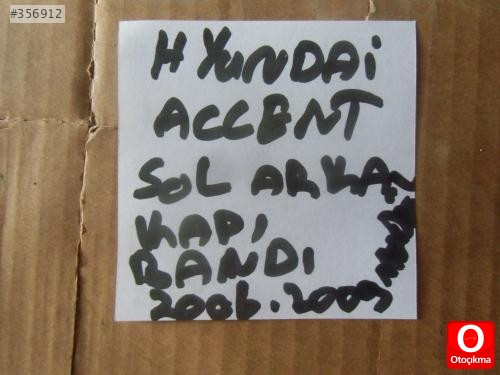 #356912
HYUNDAİ
ACCENT
SOL ARKA
KAPI
BANDI
2006.2009
Otoçıkma